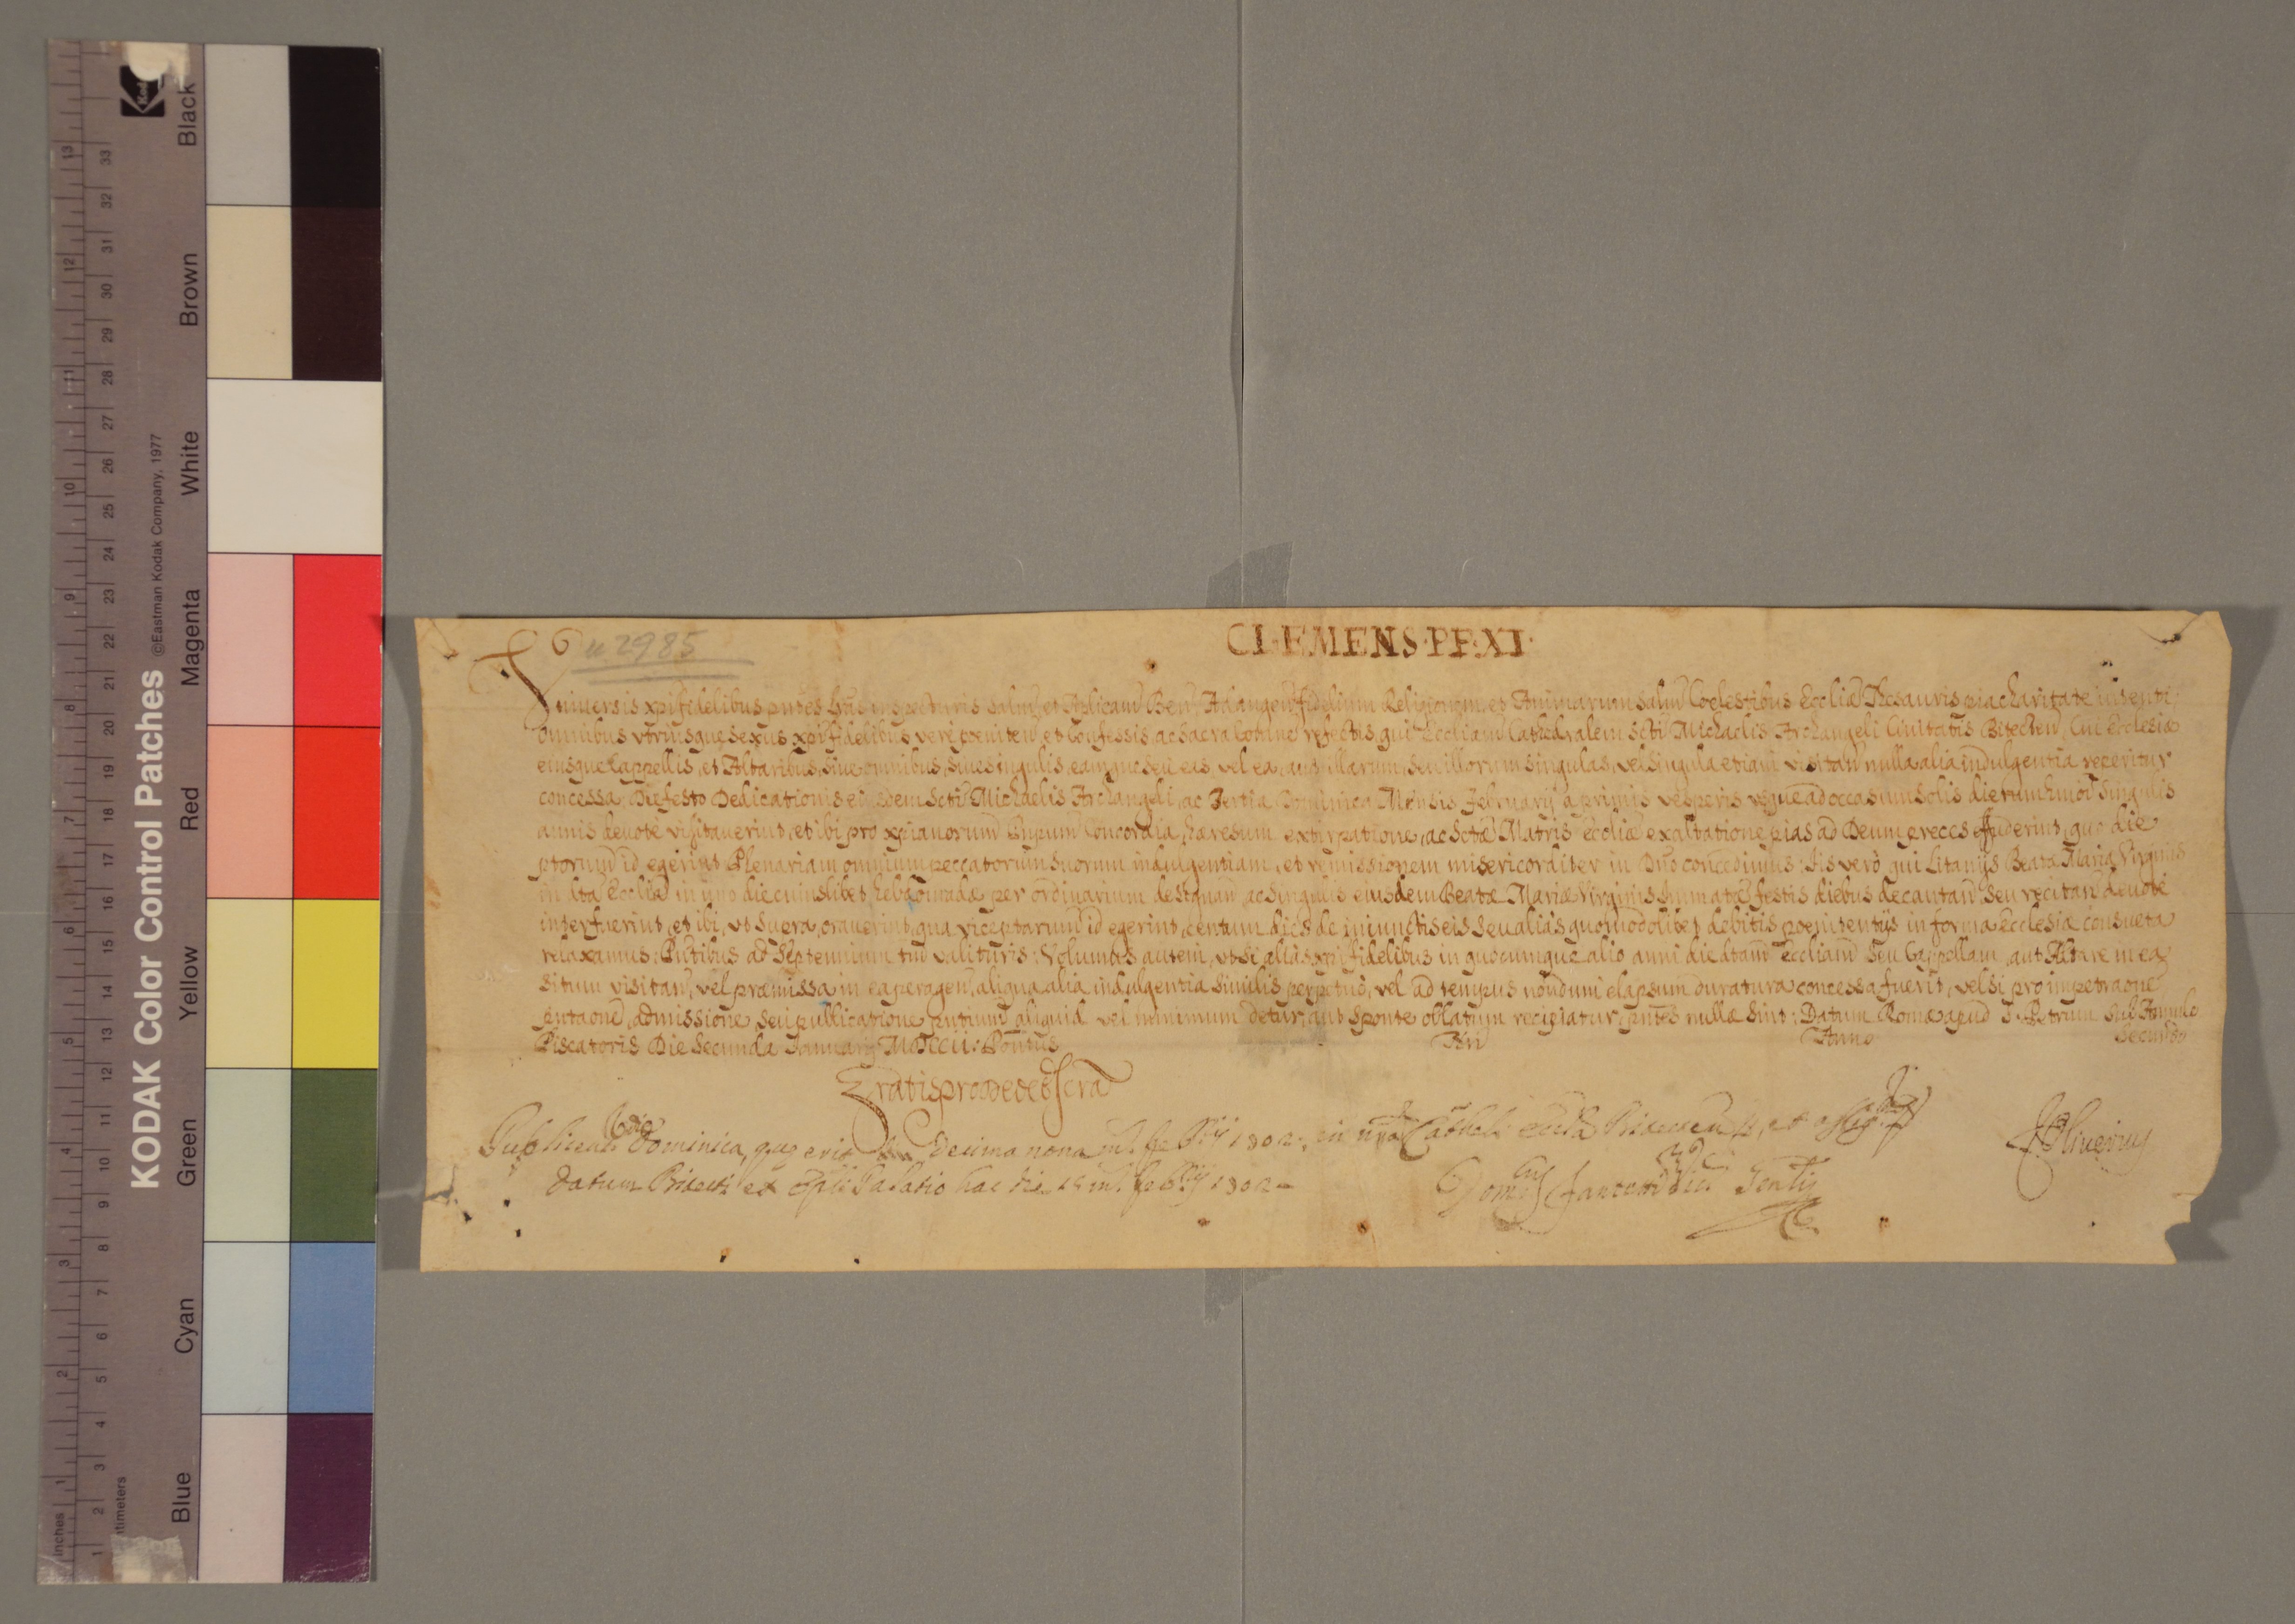 KODAK Color Control Patches ©Eastman Kodak Company, 1977
Kodak
Black
Brown
White
Magenta
Red
Yellow
Green
Cyan
Blue
Inches
timeters
n 2985
CLEMENS·PP·XI·
Vniuersis xpifidelibus pntes lras inspecturis salm, et Aplicam Ben. Ad augen fidelium Religionem, et Animarum salum Coelestibus Eccliæ Thesauris pia charitate intenti,
omnibus vtriusque sexus xpifidelibus vere poeniten, et Confessis ac sacra Coione refectis, qui Eccliam Cathedralem scti Michaelis Archangeli Ciuitatis Bitecten, Cui Ecclesiæ
eiusque Cappellis, et Altaribus, siue omnibus, siue singulis, eamque seu eas, vel ea, aut illarum, seu illorum singulas, vel singula etiam visitan nulla alia indulgentia reperitur
concessa, Die festo Dedicationis eiusdem scti Michaelis Archangeli, ac Tertia Dominica Mensis februarij a primis vesperis vsque ad occasum solis dierum hmoi singulis
annis deuote visitauerint, et ibi pro xpianorum Prpum Concordia, hæresum extirpatione, ac sctæ Matris eccliæ exaltatione pias ad Deum preces effuderint, quo die
ptorum id egerint Plenariam omnium peccatorum suorum indulgentiam, et remissionem misericorditer in Dno concedimus: Iis verò qui Litanijs Beatæ Mariæ Virginis
in dta Ecclia in vno die cuiuslibet hebdomadæ per ordinarium designan ac singulis eiusdem Beatæ Mariæ Virginis Immatæ festis diebus decantan, seu recitan deuotè
interfuerint, et ibi, vt supra, orauerint, qua vice ptarum id egerint, centum dies de iniunctis eis seu aliàs quomodolibet debitis poenitentijs in forma Ecclesiæ consueta
relaxamus: Pntibus ad Septennium tm valituris: Volumus autem, vt si aliàs xpifidelibus in quocumque alio anni die dtam eccliam seu Cappellam, aut Altare in ea
situm visitan, vel præmissa in ea peragen, aliqua alia indulgentia similis perpetuò, vel ad tempus nondum elapsum duratura concessa fuerit, vel si pro impetraone
pntaone, admissione, seu publicatione pntium aliquid vel minimum detur, aut sponte oblatum recipiatur, pntes nullæ sint: Datum Romæ apud S. Petrum sub Annulo
Piscatoris Die Secunda Ianuarij MDCCII: Pontus Nri Anno Secundo
Gratis pro Deo et scra
Publicetur Dominica, quæ erit Decima nona febrij 1702. in Cathedli
Datum palatio hac die febrij 1702
J. Oliuerius